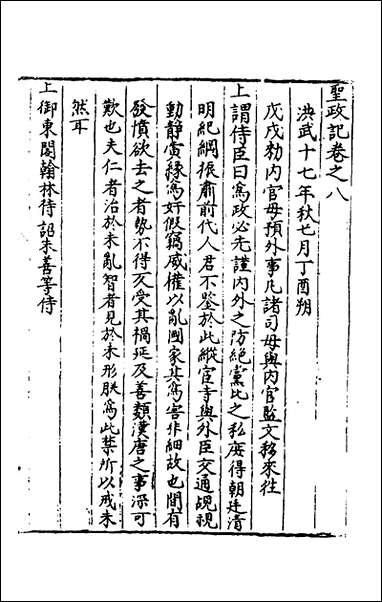 聖政記卷之八
洪武十七年秋七月丁酉朔
戊戌勑内官毋預外事凡諸司毋與内官監文移來往
上謂侍臣曰爲政必先謹内外之防絶黨比之私庶得朝廷清
明紀綱振肅前代人君不鑒於此縱宦寺與外臣交通覘視
動靜夤緣爲奸假竊威權以亂國家其爲害非細故也間有
發憤欲去之者勢不得又受其禍延及善類漢唐之事深可
歎也夫仁者治於未亂智者見於未形朕爲此禁所以戒未
然耳
上御東閣翰林待詔朱善等侍